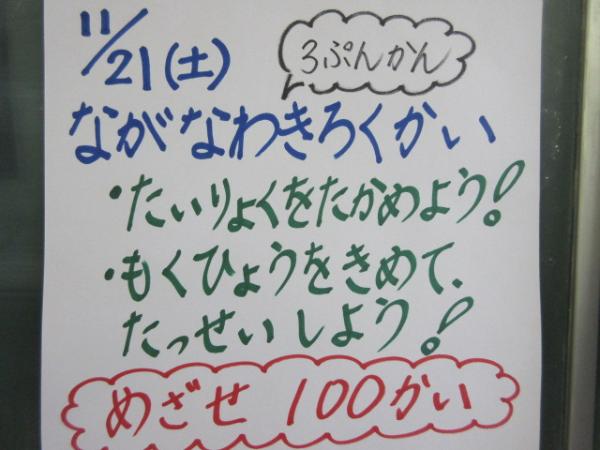 11/21(土)
3ぷんかん
ながなわきろくかい
・たいりょくをたかめよう!
・もくひょうをきめて、
たっせいしよう!
めざせ 100かい